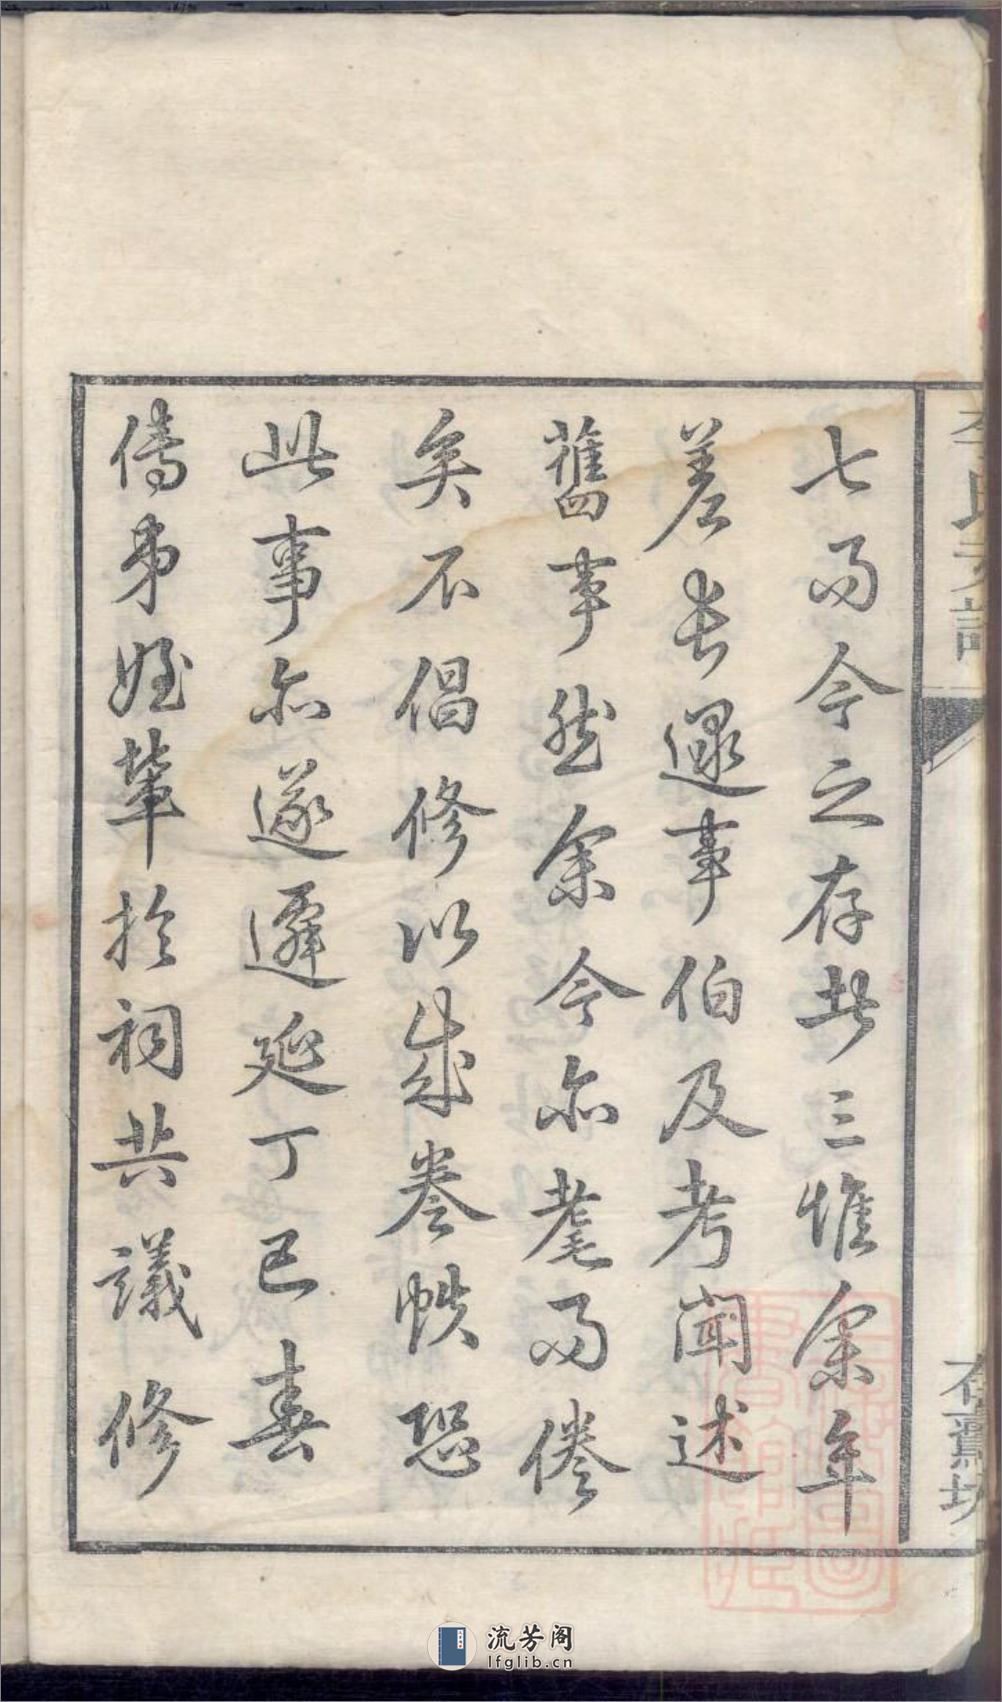 七而今之存者三惟余年
差長逮事伯及考聞述
舊事然余今亦耄而倦
矣不倡修以成卷帙恐
此事亦遂遷延丁巳春
傳弟姪輩於祠共議修
李氏支譜
在茲坊
流芳阁
lfglib.cn